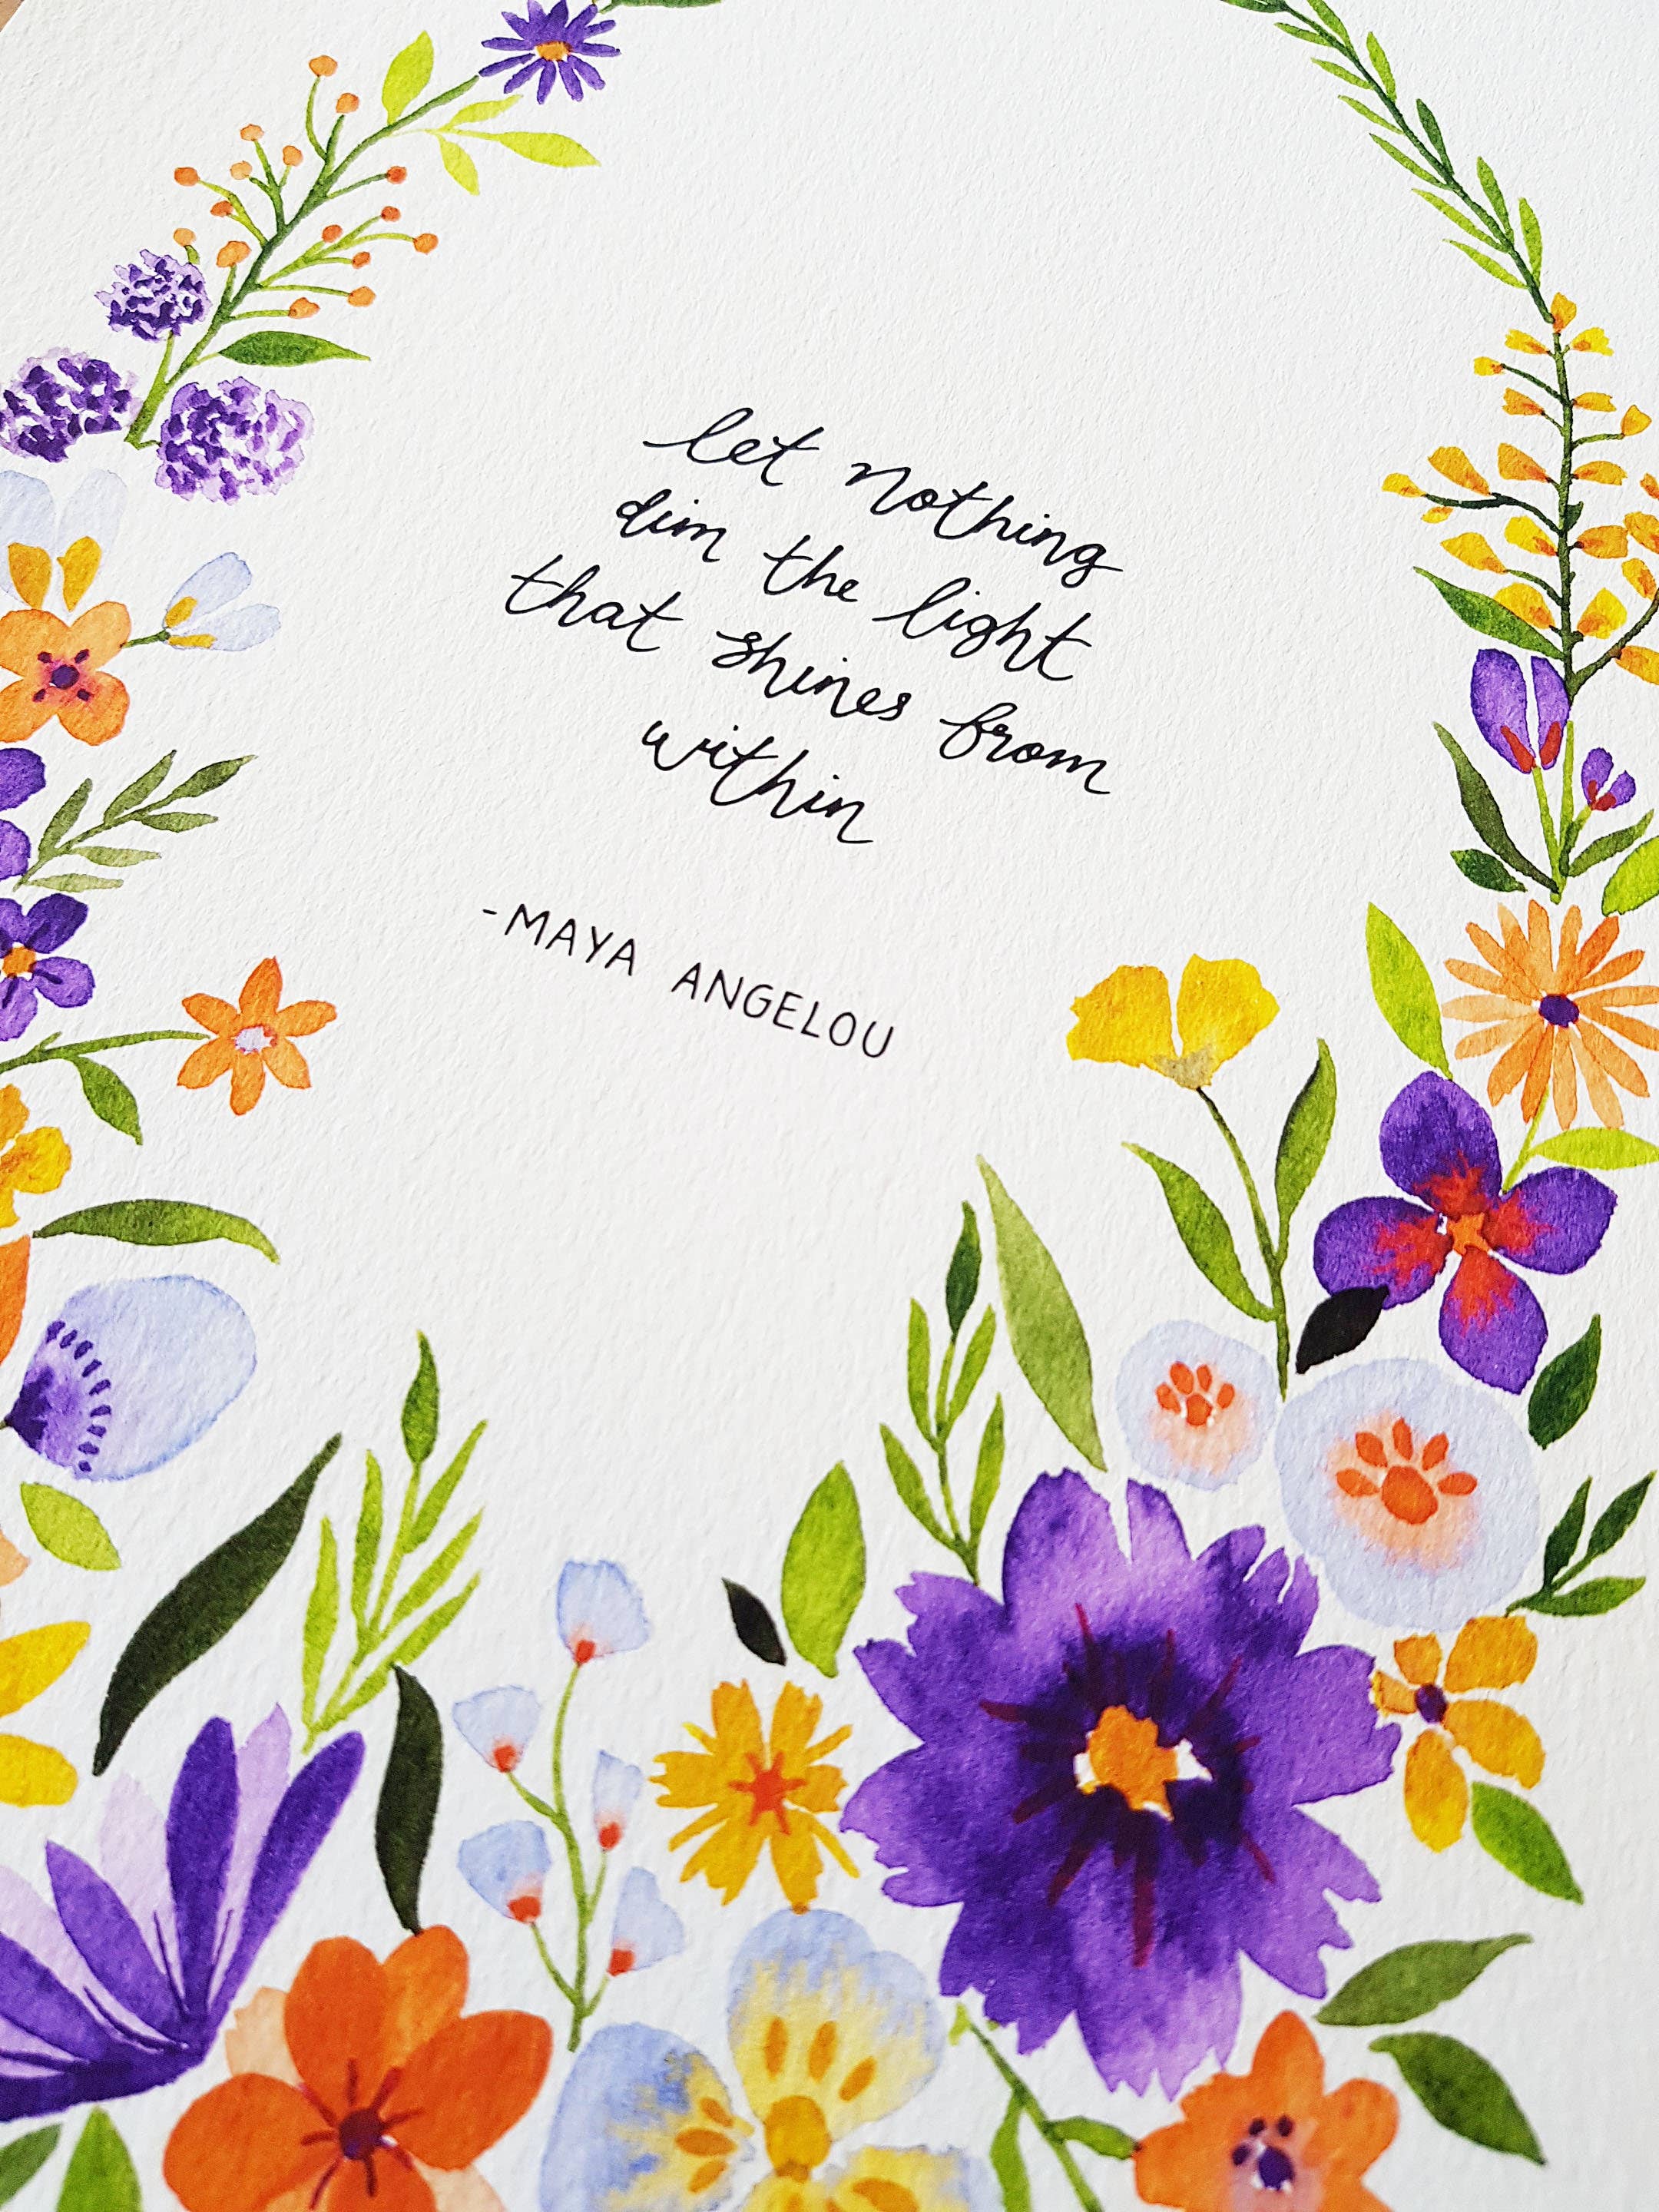 let nothing
dim the light
that shines from
within
-MAYA ANGELOU